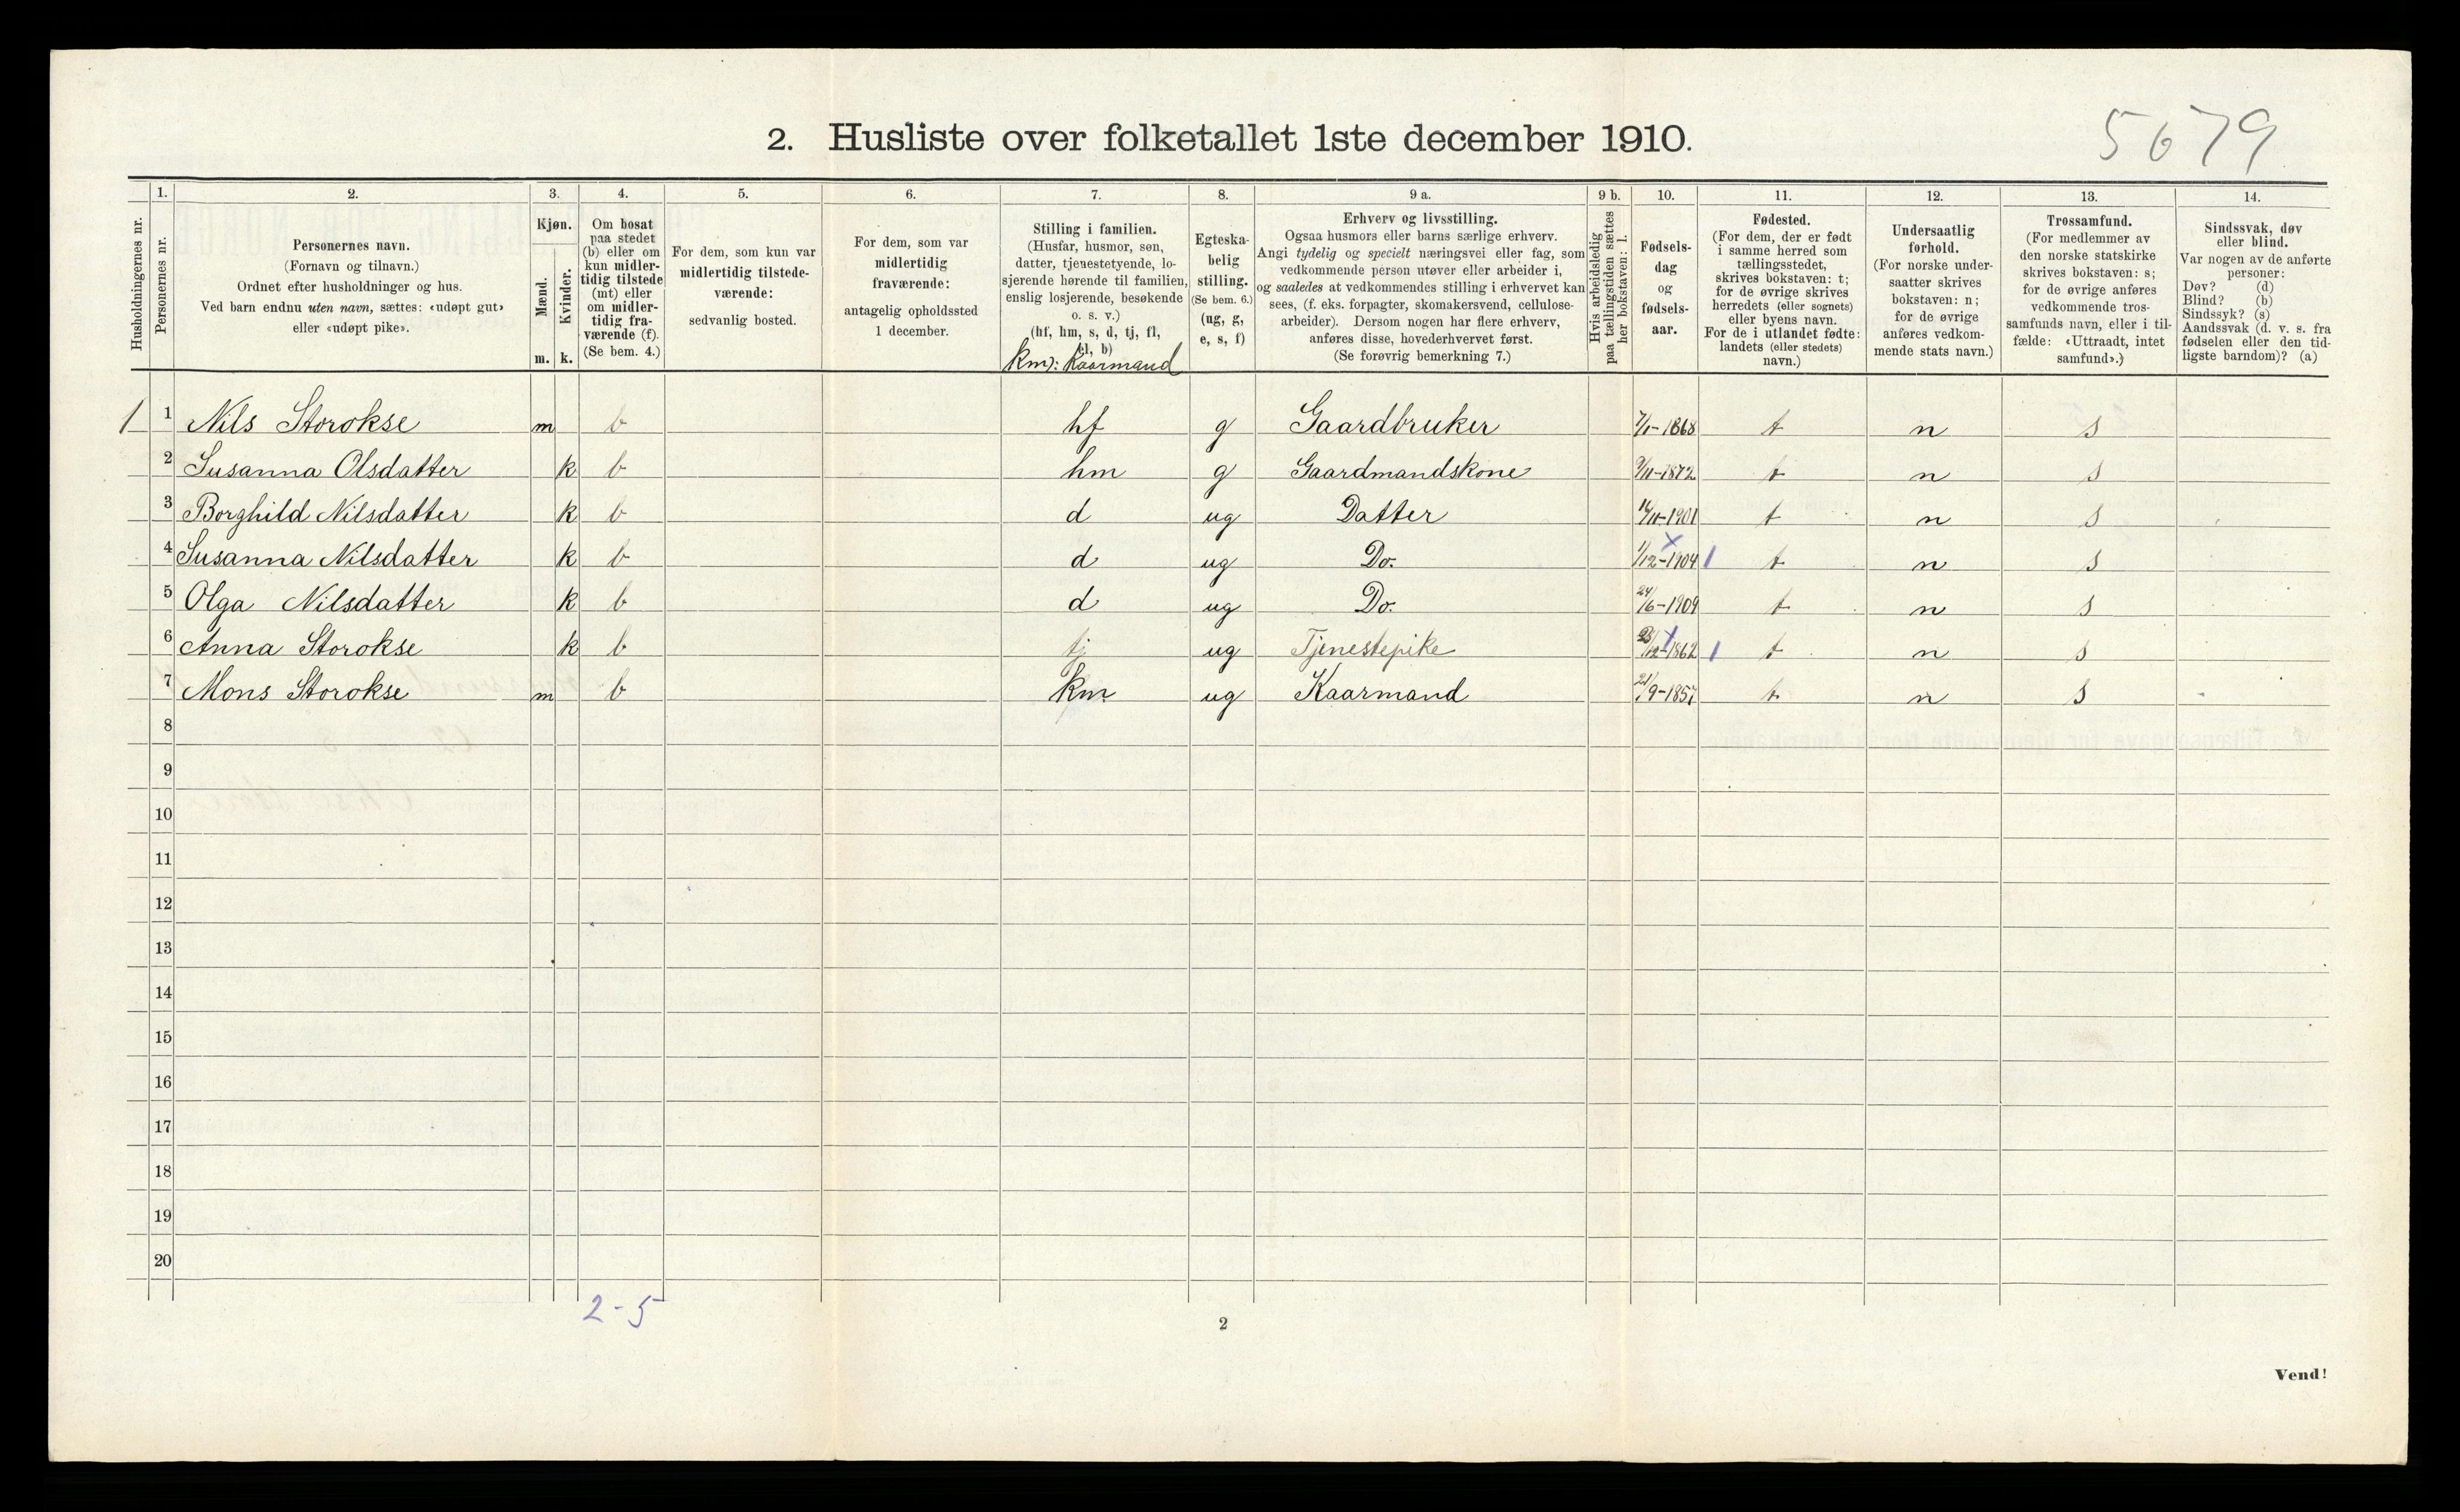 5679
2. Husliste over folketallet 1ste december 1910.
Husholdningernes nr.
1.
Personernes nr.
2.
Personernes navn.
(Fornavn og tilnavn.)
Ordnet efter husholdninger og hus.
Ved barn endnu uten navn, sættes: «udøpt gut»
eller «udøpt pike».
3.
Kjøn.
Mænd.
Kvinder.
m. k.
4.
Om bosat
paa stedet
(b) eller om
kun midler-
tidig tilstede
(mt) eller
om midler-
tidig fra-
værende (f).
(Se bem. 4.)
5.
For dem, som kun var
midlertidig tilstede-
værende:
sedvanlig bosted.
6.
For dem, som var
midlertidig
fraværende:
antagelig opholdssted
1 december.
7.
Stilling i familien.
(Husfar, husmor, søn,
datter, tjenestetyende, lo-
sjerende hørende til familien,
enslig losjerende, besøkende
o. s. v.)
(hf, hm, s, d, tj, fl,
el, b)
km): Kaarmand
8.
Egteska-
belig
stilling.
(Se bem. 6.)
(ug, g,
e, s, f)
9 a.
Erhverv og livsstilling.
Ogsaa husmors eller barns særlige erhverv.
Angi tydelig og specielt næringsvei eller fag, som
vedkommende person utøver eller arbeider i,
og saaledes at vedkommendes stilling i erhvervet kan
sees, (f. eks. forpagter, skomakersvend, cellulose-
arbeider). Dersom nogen har flere erhverv,
anføres disse, hovederhvervet først.
(Se forøvrig bemerkning 7.)
9 b.
Hvis arbeidsledig
paa tællingstiden sættes
her bokstaven: l.
10.
Fødsels-
dag
og
fødsels-
aar.
11.
Fødested.
(For dem, der er født
i samme herred som
tællingsstedet,
skrives bokstaven: t;
for de øvrige skrives
herredets (eller sognets)
eller byens navn.
For de i utlandet fødte:
landets (eller stedets)
navn.)
12.
Undersaatlig
forhold.
(For norske under-
saatter skrives
bokstaven: n;
for de øvrige
anføres vedkom-
mende stats navn.)
13.
Trossamfund.
(For medlemmer av
den norske statskirke
skrives bokstaven: s;
for de øvrige anføres
vedkommende tros-
samfunds navn, eller i til-
fælde: «Uttraadt, intet
samfund».)
14.
Sindssvak, døv
eller blind.
Var nogen av de anførte
personer:
Døv? (d)
Blind? (b)
Sindssyk? (s)
Aandssvak (d. v. s. fra
fødselen eller den tid-
ligste barndom)? (a)
1 1 Nils Storokse m b hf g Gaardbruker 7/1-1868 t n s
2 Susanna Olsdatter k b hm g Gaardmandskone 9/11-1872 t n s
3 Borghild Nilsdatter k b d ug Datter 16/11-1901 t n s
4 Susanna Nilsdatter k b d ug Do. 1/12-1904 1 t n s
5 Olga Nilsdatter k b d ug Do. 24/6-1909 t n s
6 Anna Storokse k b tj ug Tjenestepike /12-1862 1 t n s
7 Mons Storokse m b km ug Kaarmand 21/9-1857 t n s
8
9
10
11
12
13
14
15
16
17
18
19
20
2-5
2
Vend!